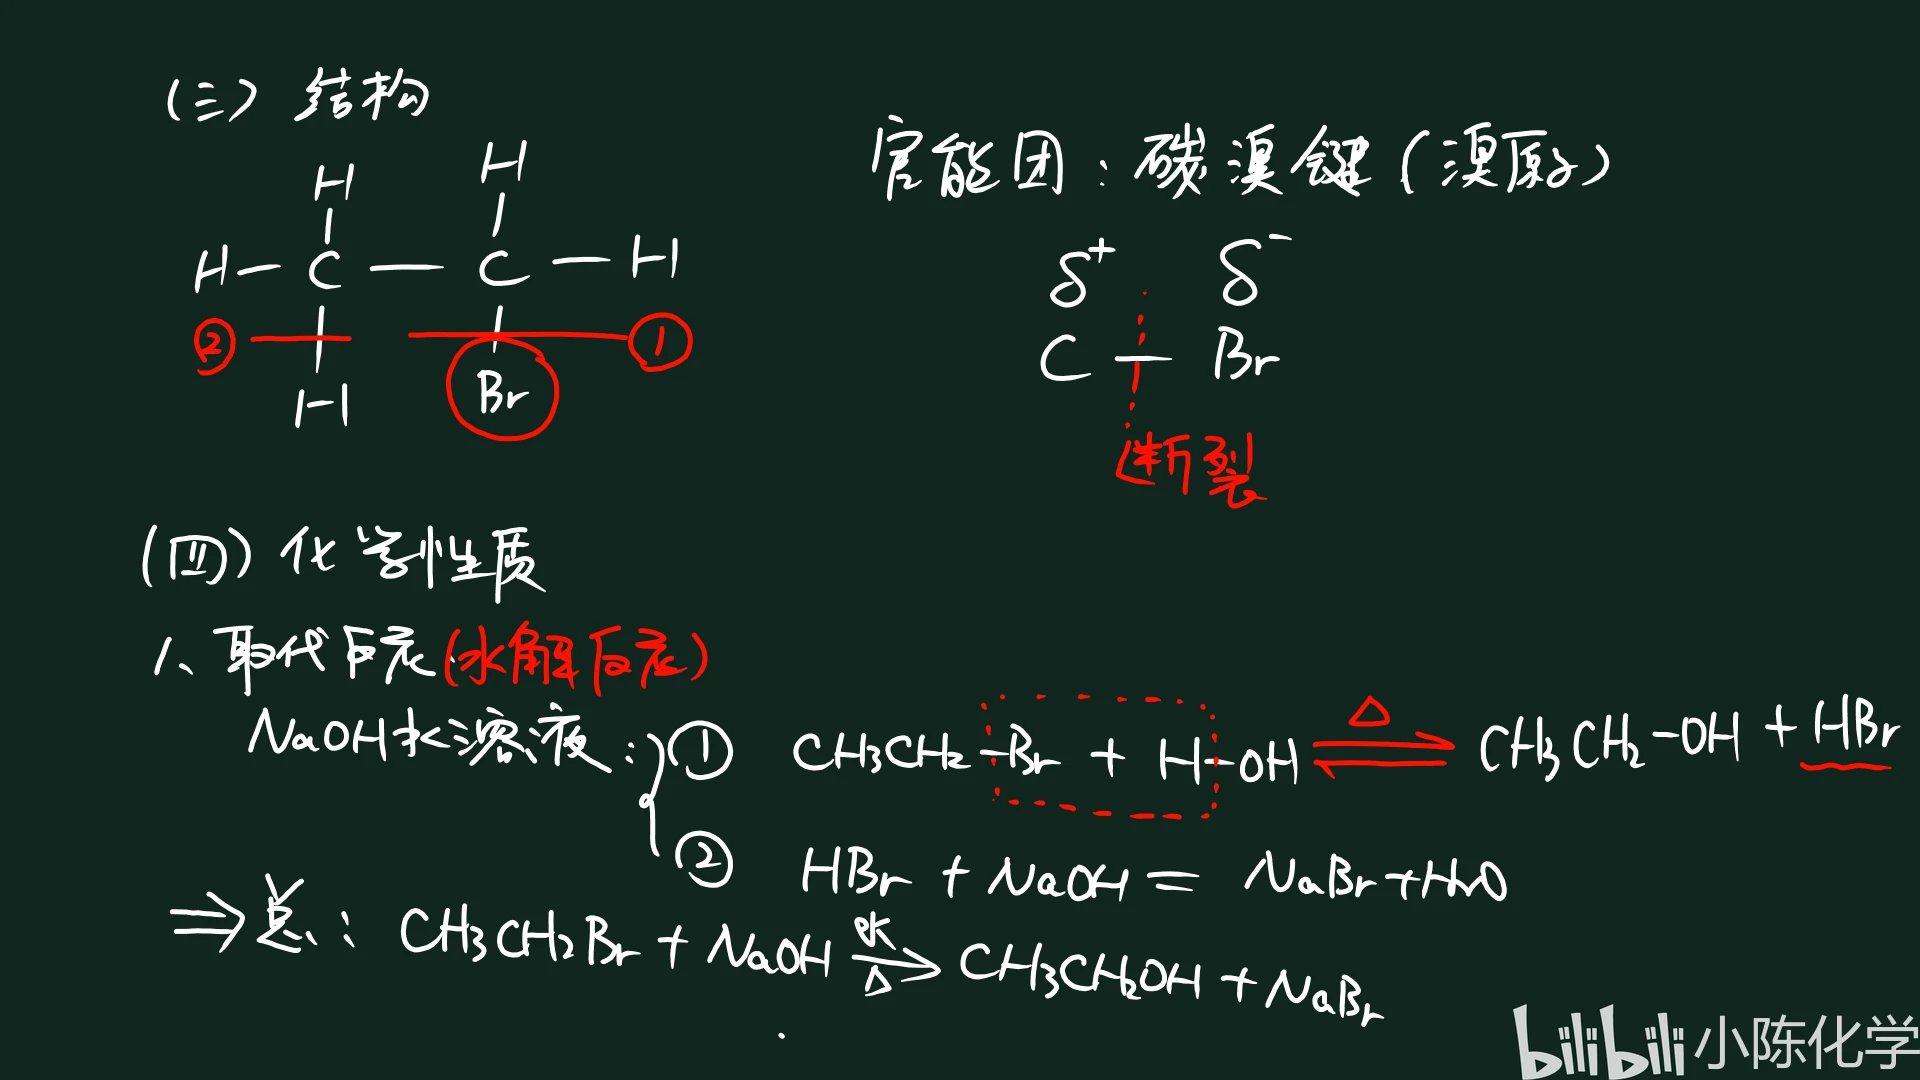 (三) 结构
官能团：碳溴键（溴原子）
H H
H—C—C—H
② ①
H Br
δ+ δ-
C—Br
断裂
(四) 化学性质
1、取代反应(水解反应)
NaOH水溶液：① CH3CH2-Br + H-OH ⇌ △ CH3CH2-OH + HBr
② HBr + NaOH = NaBr + H2O
⇒总：CH3CH2Br + NaOH 水 △ → CH3CH2OH + NaBr
bilibili 小陈化学